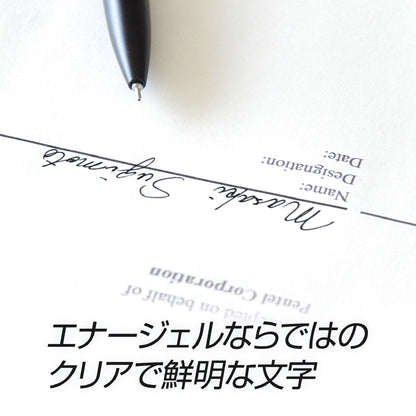 Date:
Designation:
Name:
Masaki Sugimoto
Pentel Corporation
epted on behalf of
エナージェルならではの
クリアで鮮明な文字